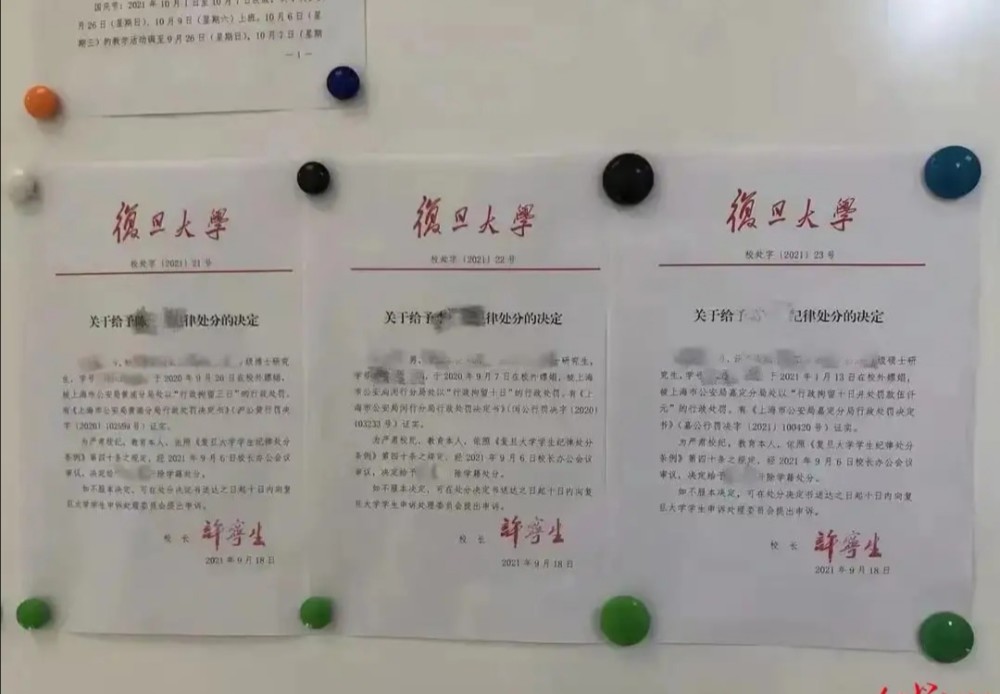 国庆节：2021 年 10 月 1 日至 10 月 7 日
月 26 日（星期日）、10 月 9 日（星期六）上班。10 月 6 日（星
期三）的教学活动调至 9 月 26 日（星期日），10 月 7 日（星期
—1—
復旦大學
校处字〔2021〕21 号
关于给予 纪律处分的决定
级博士研究
生，学号 ，于 2020 年 9 月 26 日在校外嫖娼，
被上海市公安局黄浦分局处以“行政拘留三日”的行政处罚，
有《上海市公安局黄浦分局行政处罚决定书》（沪公黄行罚决
字〔2020〕102598 号）证实。
为严肃校纪，教育本人，依照《复旦大学学生纪律处分
条例》第四十条之规定，经 2021 年 9 月 6 日校长办公会议
审议，决定给予 除学籍处分。
如不服本决定，可在处分决定书送达之日起十日内向复
旦大学学生申诉处理委员会提出申诉。
校 长 許寧生
2021 年 9 月 18 日
復旦大學
校处字〔2021〕22 号
关于给予李 纪律处分的决定
男， 研究生，
学号 ，于 2020 年 9 月 7 日在校外嫖娼，被上海
市公安局闵行分局处以“行政拘留十日”的行政处罚，有《上海
市公安局闵行分局行政处罚决定书》（闵公行罚决字〔2020〕
103233 号）证实。
为严肃校纪，教育本人，依照《复旦大学学生纪律处分
条例》第四十条之规定，经 2021 年 9 月 6 日校长办公会议
审议，决定给予 除学籍处分。
如不服本决定，可在处分决定书送达之日起十日内向复
旦大学学生申诉处理委员会提出申诉。
校 长 許寧生
2021 年 9 月 18 日
復旦大學
校处字〔2021〕23 号
关于给予 纪律处分的决定
级硕士研
究生，学号 ，于 2021 年 1 月 13 日在校外嫖娼，
被上海市公安局嘉定分局处以“行政拘留十日并处罚款伍仟
元”的行政处罚，有《上海市公安局嘉定分局行政处罚决定
书》（嘉公行罚决字〔2021〕100420 号）证实。
为严肃校纪，教育本人，依照《复旦大学学生纪律处分
条例》第四十条之规定，经 2021 年 9 月 6 日校长办公会议
审议，决定给予 除学籍处分。
如不服本决定，可在处分决定书送达之日起十日内向复
旦大学学生申诉处理委员会提出申诉。
校 长 許寧生
2021 年 9 月 18 日